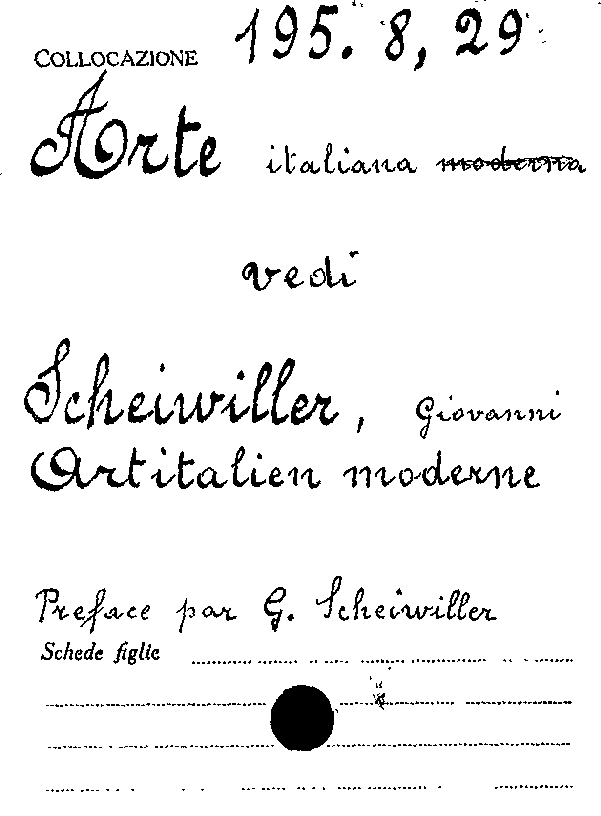 COLLOCAZIONE 195. 8, 29
Arte italiana moderna
vedi
Scheiwiller, Giovanni
Art italien moderne
Preface par G. Scheiwiller
Schede figlie